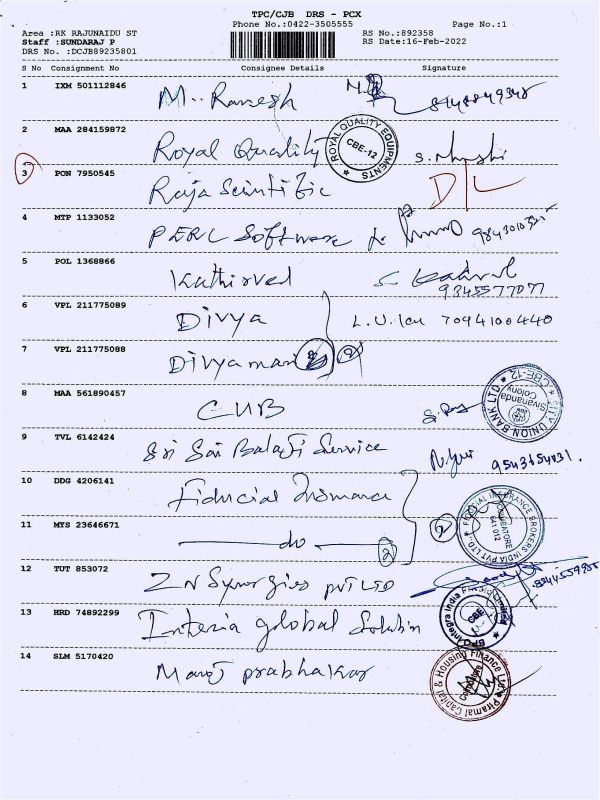 TPC/CJB DRS - PCX
Phone No.:0422-3505555 Page No.:1
Area :RK RAJUNAIDU ST RS No.:892358
Staff :SUNDARAJ P RS Date:16-Feb-2022
DRS No. :DCJB89235801
S No Consignment No Consignee Details Signature
1 IXM 501112846 M.. Ramesh
2 MAA 284159872 Royal Quality ROYAL QUALITY EQUIPMENTS CBE-12
3 PON 7950545 Raja Scientific D/L
4 MTP 1133052 Software
5 POL 1368866 Kathirvel
9345577077
6 VPL 211775089 Divya 7094100440
7 VPL 211775088 Divyamani 2
8 MAA 561890457 CUB CITY UNION BANK LTD Sivananda Colony CBE-12
9 TVL 6142424 Sri Sai Balaji Service
10 DDG 4206141 Fiducial Insurance
11 MYS 23646671 do 2 INSURANCE BROKERS INDIA PVT LTD COIMBATORE 641 012
12 TUT 853072 ZN Synergies Pvt LTD
13 HRD 74892299 global Integra India CBE
14 SLM 5170420 Manoj prabhakar Piramal Capital & Housing Finance Ltd. Coimbatore